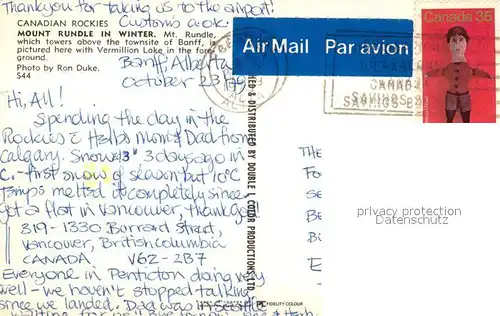 Thank you for taking us to the airport!
Customs a.ok.
CANADIAN ROCKIES
MOUNT RUNDLE IN WINTER, Mt. Rundle,
which towers above the townsite of Banff, is
pictured here with Vermillion Lake in the fore-
ground.
Photo by Ron Duke.
S44
Banff, Alberta
October 23/79
Hi, All!
Spending the day in the
Rockies & Hello Mom & Dad from
Calgary. Snow 3" 3 days ago in
C. - first snow of season but 10°C
temps melted it completely since.
got a flat in Vancouver, thank god!
319-1330 Burrard Street,
Vancouver, British Columbia
CANADA V6Z-2B7
Everyone in Penticton doing very
well - we haven't stopped talking
since we landed. Dad was in Seattle
Air Mail Par avion
Canada 35
CANADA
SAVINGS
& DISTRIBUTED BY DOUBLE L COLOR PRODUCTIONS LTD.
FIDELITY COLOUR
THE
Fo
Se
Be
Bi
E
privacy protection
Datenschutz